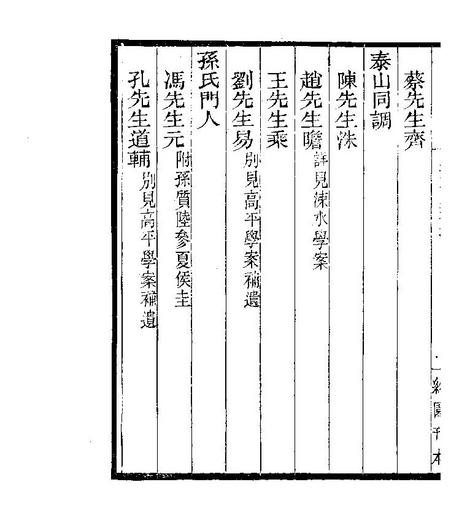 蔡先生齊
泰山同調
陳先生洙
趙先生瞻詳見涑水學案
王先生乘
劉先生易別見高平學案補遺
孫氏門人
馮先生元附孫質陸參夏侯圭
孔先生道輔別見高平學案補遺